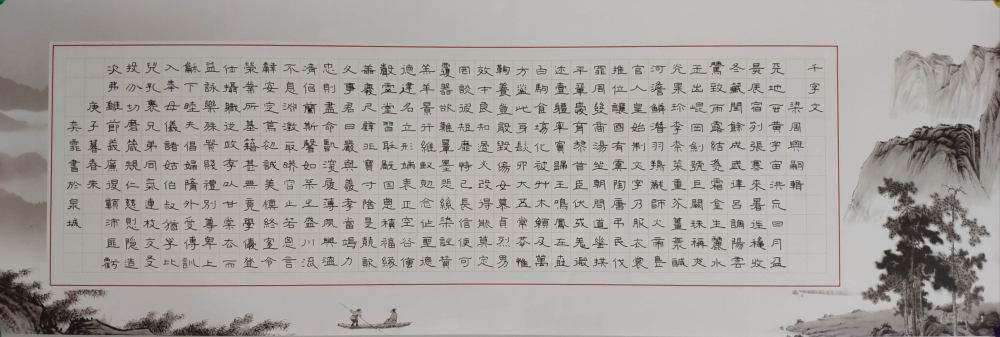 千字文
梁 周興嗣輯
天地玄黃宇宙洪荒日月盈
昃辰宿列張寒來暑往秋收
冬藏閏餘成歲律呂調陽雲
騰致雨露結為霜金生麗水
玉出崐岡劍號巨闕珠稱夜
光果珍李柰菜重芥薑海鹹
河淡鱗潛羽翔龍師火帝鳥
官人皇始制文字乃服衣裳
推位讓國有虞陶唐弔民伐
罪周發商湯坐朝問道垂拱
平章愛育黎首臣伏戎羌遐
邇壹體率賓歸王鳴鳳在
白駒食場化被草木賴及萬
方蓋此身髮四大五常恭惟
鞠養豈敢毀傷女慕貞烈男
效才良知過必改得能莫忘
罔談彼短靡恃己長信使可
覆器欲難量墨悲絲染詩讚
羔羊景行維賢克念作聖德
德建名立形端表正空谷傳
聲虛堂習聽禍因惡積福緣
善慶尺璧非寶寸陰是競資
父事君曰嚴與敬孝當竭力
忠則盡命臨深履薄夙興溫
凊似蘭斯馨如松之盛川流
不息淵澄取映容止若思言
辭安定篤初誠美慎終宜令
榮業所基籍甚無竟學優登
仕攝職從政存以甘棠去而
益詠樂殊貴賤禮別尊卑上
和下睦夫唱婦隨外受傅訓
入奉母儀諸姑伯叔猶子比
兒孔懷兄弟同氣連枝交友
投分切磨箴規仁慈隱惻造
次弗離節義廉退顛沛匪虧
庚子暮春朱
奕霏書於泉城